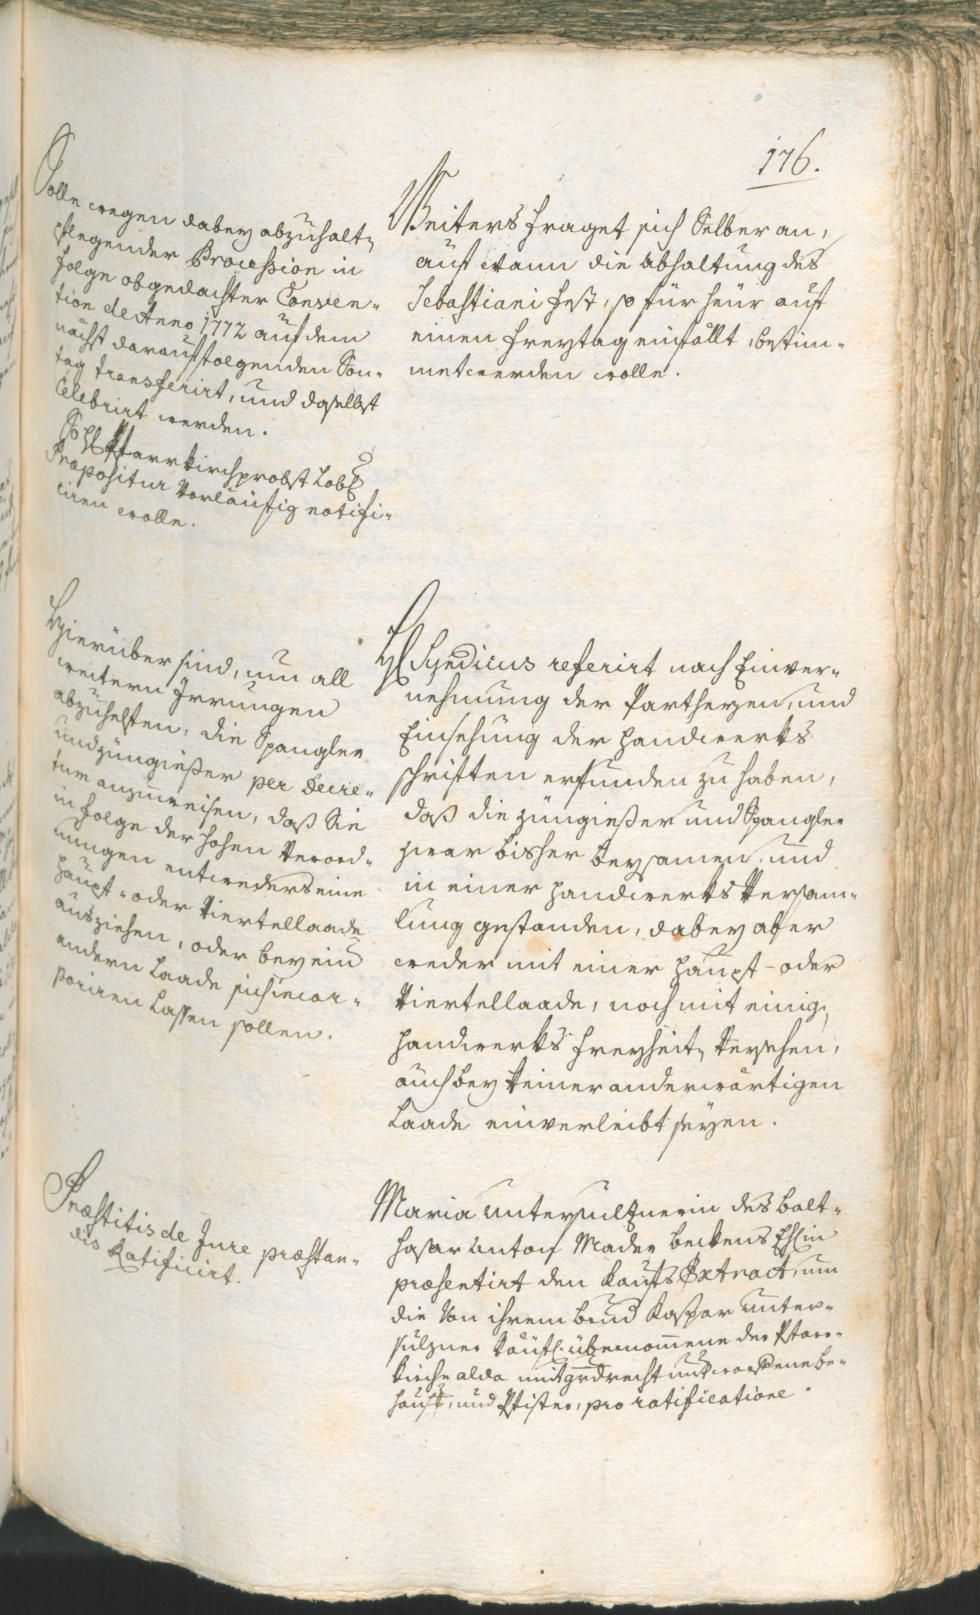 176.
Solle wegen dabey abzuhalt
pflegender Procession in
folge obgedachter Conven-
tion de Anno 1772 auf dem
nächst darauffolgenden Son-
tag transferirt, und daselbst
Celebrirt werden.
So H Pfarrkirchprobst Lobl
Præpositur Vorläufig notifi-
ciren wolle.
Weiters fraget sich Selber an,
auf wann die Abhaltung des
Sebastiani fest, so für heür auf
einen Freytag einfallt, bestim-
met werden wolle.
Hierüber sind, um all
weitern Irrungen
abzuhelfen, die Spangler
und züngießer per Decre-
tum anzuweisen, daß Sie
in folge der hohen Verord-
nungen entweders eine
haupt- oder Viertellaade
ausziehen, oder bey ein
andern Laade sich incor-
poriren Lassen sollen.
H Syndicus referirt nach Einver-
nehmung der Partheyen, und
Einsehung der handwerks
schriften erfunden zu haben,
daß die züngießer und Spangler
zwar bisher beysamen, und
in einer handwerks Versam-
lung gestanden, dabey aber
weder mit einer haupt- oder
Viertellaade, noch mit einig
handwerks Freyheit Versehen,
auch bey keiner anderwärtigen
Laade einverleibt seyen.
Præstitis de Jure præstan-
dis Ratificirt.
Maria Untersulznerin des Balt-
hasar Anton Mader beckens Ehin
præsentirt den Kaufs Extract, um
die Von ihrem brud Kaspar Unter-
sulzner Käufl. übernomene der Pfarr-
kirche alda mit grdrecht unterworffene be-
hauß, und Pfister, pro ratificatione.